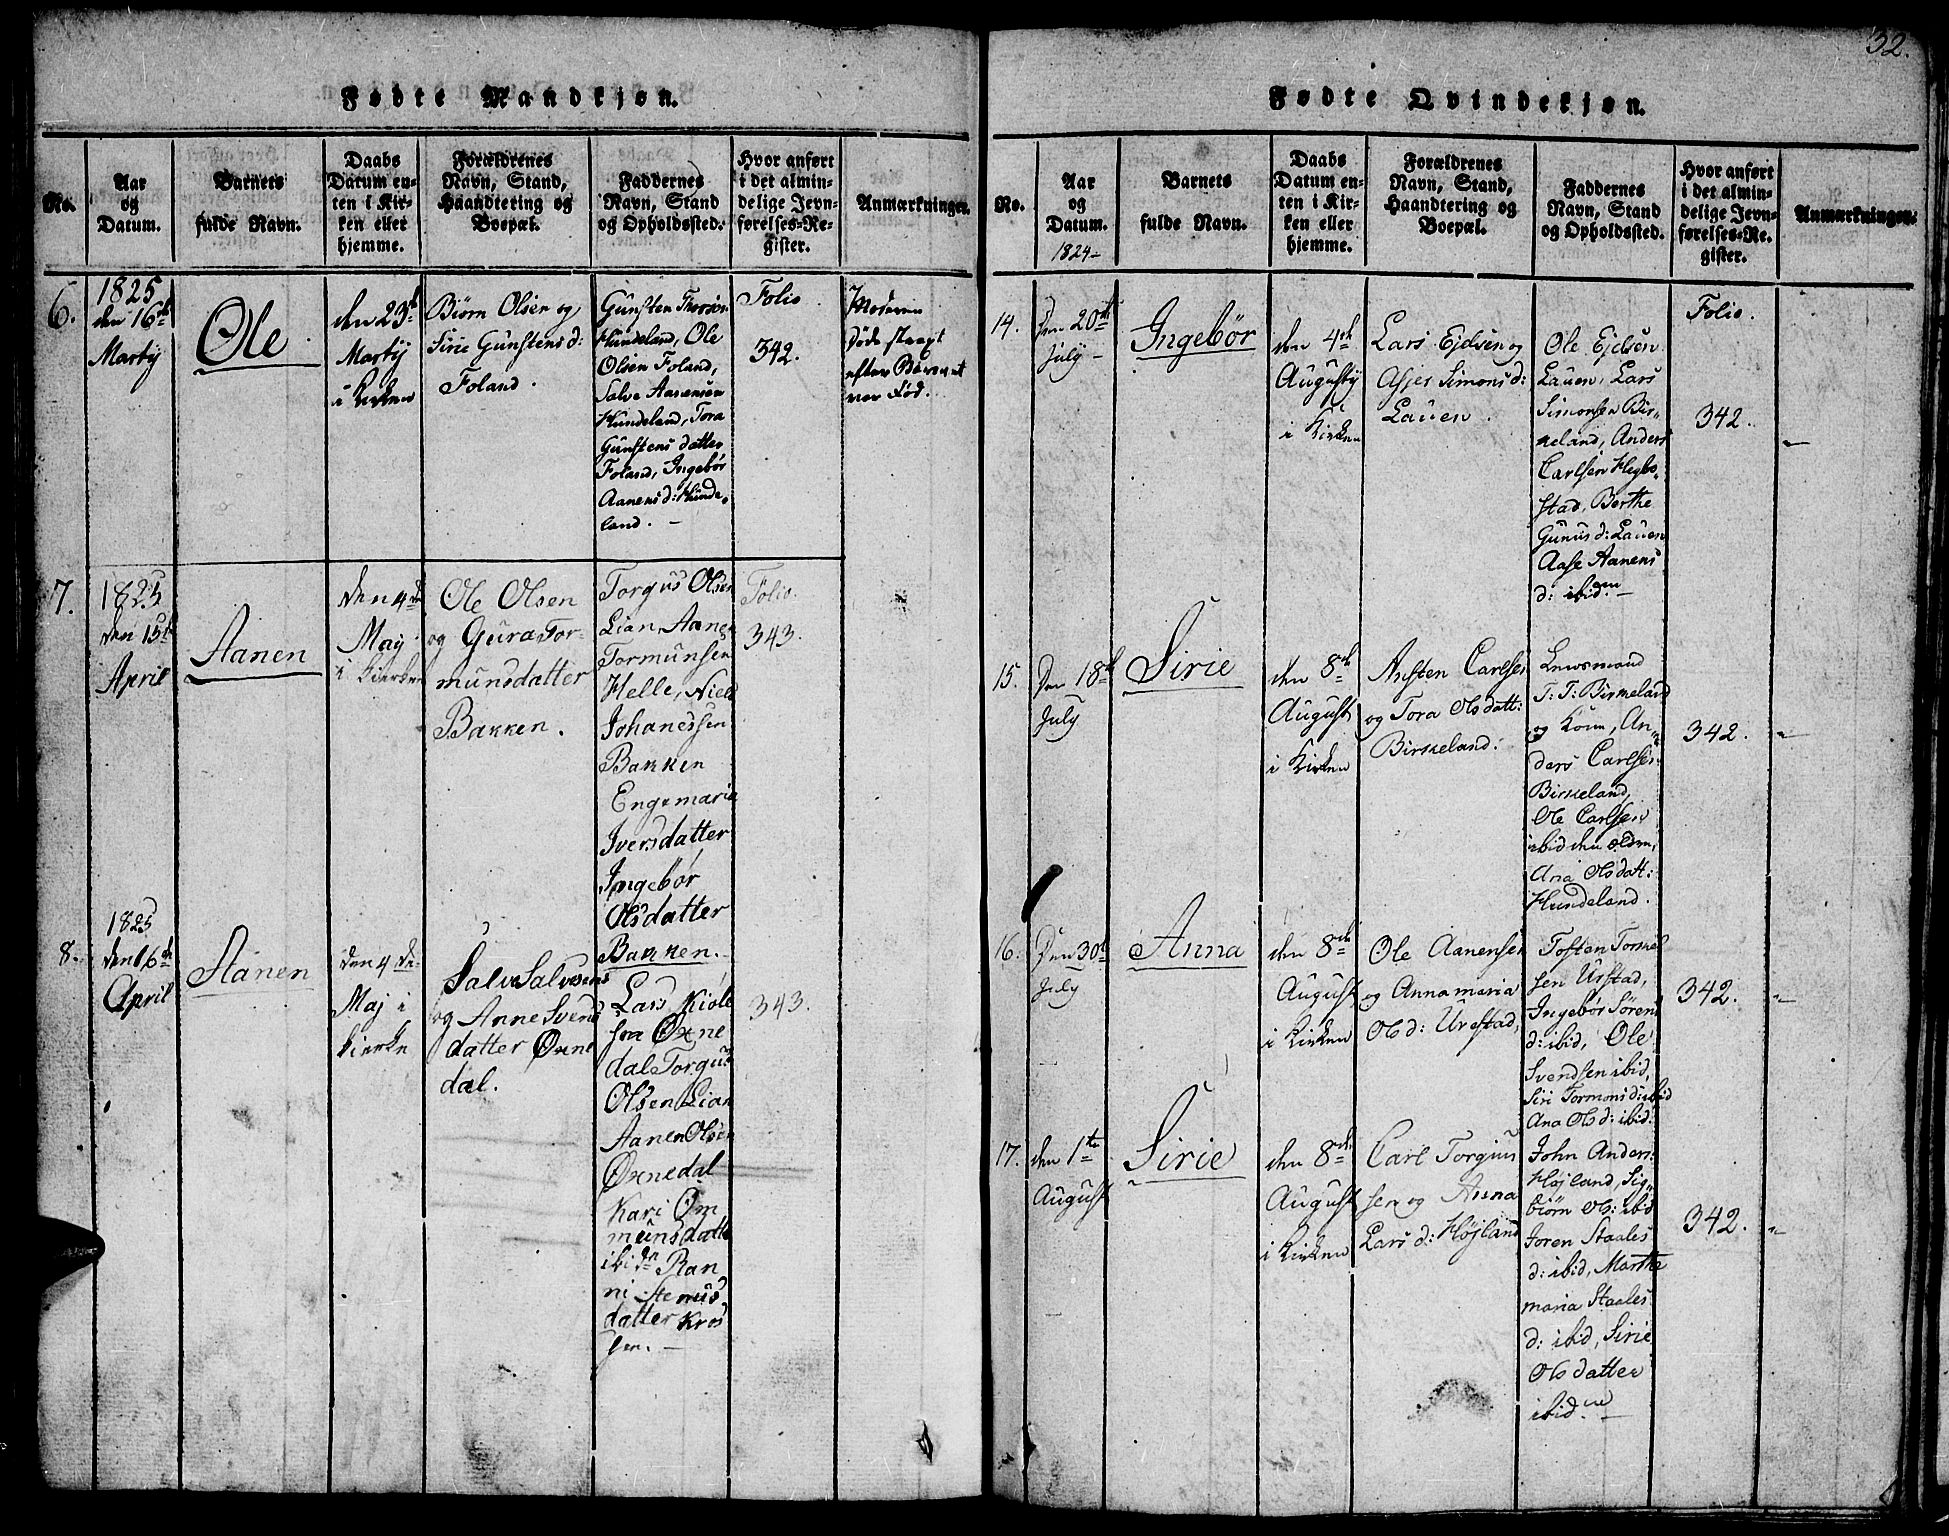 32.
Fødte Mandkjøn.
No.
Aar
og
Datum.
Barnets
fulde Navn.
Daabs
Datum en-
ten i Kir-
ken eller
hjemme.
Forældrenes
Navn, Stand,
Haandtering og
Boepæl.
Faddernes
Navn, Stand
og Opholdssted.
Hvor anført
i det almin-
delige Jevn-
førelses-Re-
gister.
Anmærkninger.
6.
1825
den 16de
Martij
Ole
den 23de
Martij
i Kirken
Biørn Olsen og
Sirie Gunstens d:
Foland.
Gunsten
Hundeland, Ole
Olsen Foland,
Salve Aanensen
Hundeland, Tora
Gunstens datter
Foland, Ingebør
Aanens d: Hunde-
land. -
Folio
342.
Moderen
døde stragt
efter Barnet
var Fød.
7.
1825
den 15de
April
Aanen
den 4de
May
i kierken
Ole Olsen
og Gura Tor-
munsdatter
Bakken.
Torgus Olsen
Lian, Aanen
Tormunsen
Helle, Niels
Johanessen
Bakken
Engemaria
Iversdatter
Ingebør
Olsdatter
Bakken.
Folio.
343.
8.
1825
den 16de
April
Aanen
den 4de
Maj i
kierke
Salve Salvesens
og Anne Svends
datter Øxne
dal.
Lars Kiøle
fra Øxne
dal Torgus
Olsen Lian
Aanen Olsen
Øxnedal
Kari Om
munsdatter
ibidn Ran
ni
datter Kros
sen. -
343.
Fødte Qvindekjøn.
No.
Aar
og
Datum.
1824-
Barnets
fulde Navn.
Daabs
Datum en-
ten i Kir-
ken eller
hjemme.
Forældrenes
Navn, Stand,
Haandtering og
Boepæl.
Faddernes
Navn, Stand
og Opholdssted.
Hvor anført
i det almin-
delige Jevn-
førelses-Re-
gister.
Anmærkninger.
14.
Den 20de
July -
Ingebør
den 4de
Augustij
i Kirken
Lars Ejdsen og
Asjer Simons d:
Lauen.
Ole Ejdsen
Lauen, Lars
Simonsen Bir-
keland, Anders
Carlsen Hegbo-
stad, Berthe
Gunus d: Lauen
Aase Aanens
d: ibidem. -
Folio.
342.
15.
Den 18de
July
Sirie
den 8de
August
i Kirken
Ansten Carlsen
og Tora Olsdatt:
Birkeland.
Lensmand
T: T: Birkeland
og Kone, An-
ders Carlsen
Birkeland,
Ole Carlsen
ibid den oldre,
Ana Olsdatt:
Hundeland.
342.
16.
Den 30te
July
Anna
den 8de
August
i Kirken
Ole Aanensen
og Annamaria
Ols d: Urestad,
Tosten Torkel
sen Urstad,
Ingebør Sørens
d: ibid, Ole
Svendsen ibid,
Siri Tormons d: ibid
Ana Ols d: ibid.
342.
17.
den 1te
August
Sirie
den 8de
August
i Kirken
Carl Torgius
sen og Anna
Lars d: Højland
John Anders:
Højland, Sig-
biørn Ols: ibid
Joren Staales
d: ibid, Marthe
maria Staales
d: ibid, Sirie
Olsdatter
ibid.em -
342.